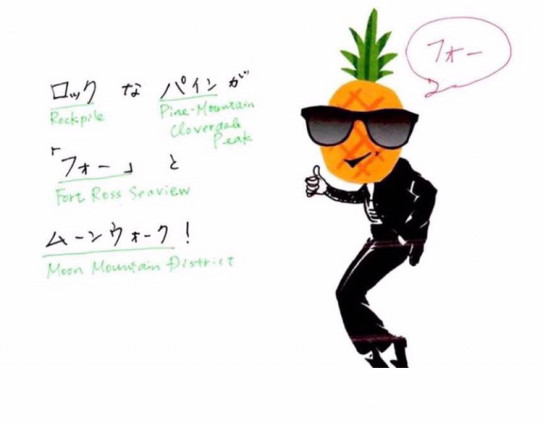 ロックなパインが
Rockpile
Pine-Mountain
Cloverdale
Peak
「フォー」と
Fort Ross Seaview
ムーンウォーク!
Moon Mountain District
フォー